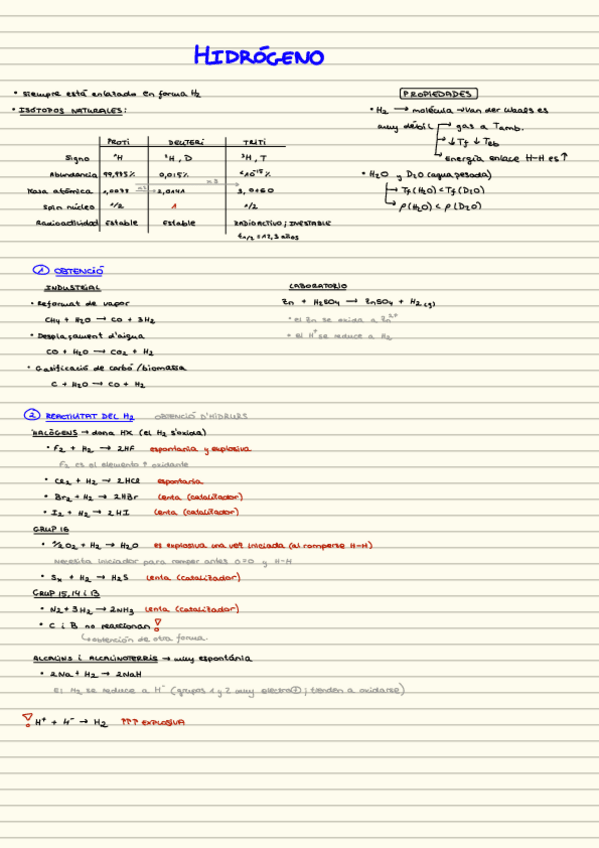 HIDRÓGENO
• siempre está enlazado en forma H₂
• ISÓTOPOS NATURALES:
PROTI DEUTERI TRITI
Signo ¹H ²H, D ³H, T
Abundancia 99,985% 0,015% <10⁻¹⁵%
Masa atómica 1,0078 x2 2,0141 x3 3,0160
Spin núcleo 1/2 1 1/2
Radioactividad Estable Estable RADIOACTIVO; INESTABLE
t₁/₂ = 12,3 años
PROPIEDADES
• H₂ → molécula → Van der Waals es
muy débil → gas a Tamb.
→ ↓Tf ↓Teb
→ Energía enlace H-H es ↑
• H₂O y D₂O (agua pesada)
→ Tf(H₂O) < Tf(D₂O)
→ ρ(H₂O) < ρ(D₂O)
① OBTENCIÓ
INDUSTRIAL
• Reformat de vapor
CH₄ + H₂O → CO + 3H₂
• Desplaçament d'aigua
CO + H₂O → CO₂ + H₂
• Gasificació de carbó/biomassa
C + H₂O → CO + H₂
LABORATORIO
Zn + H₂SO₄ → ZnSO₄ + H₂(g)
• el Zn se oxida a Zn²⁺
• el H⁺ se reduce a H₂
② REACTIVITAT DEL H₂ OBTENCIÓ D'HIDRURS
HALÒGENS → dona HX (el H₂ s'oxida)
• F₂ + H₂ → 2HF espontania y explosiva
F₂ es el elemento ↑ oxidante
• Cl₂ + H₂ → 2HCl espontania
• Br₂ + H₂ → 2HBr lenta (catalitzador)
• I₂ + H₂ → 2HI lenta (catalitzador)
GRUP 16
• 1/2O₂ + H₂ → H₂O es explosiva una vez iniciada (al romperse H-H)
Necesita iniciador para romper antes O=O y H-H
• Sx + H₂ → H₂S lenta (catalizador)
GRUP 15, 14 i 13
• N₂ + 3H₂ → 2NH₃ lenta (catalizador)
• C i B no reaccionan !
↳ obtención de otra forma.
ALCALINS i ALCALINOTERRIS → muy espontánia
• 2Na + H₂ → 2NaH
El H₂ se reduce a H⁻ (grupos 1 y 2 muy electro⊕; tienden a oxidarse)
! H⁺ + H⁻ → H₂ ↑↑↑ EXPLOSIVA